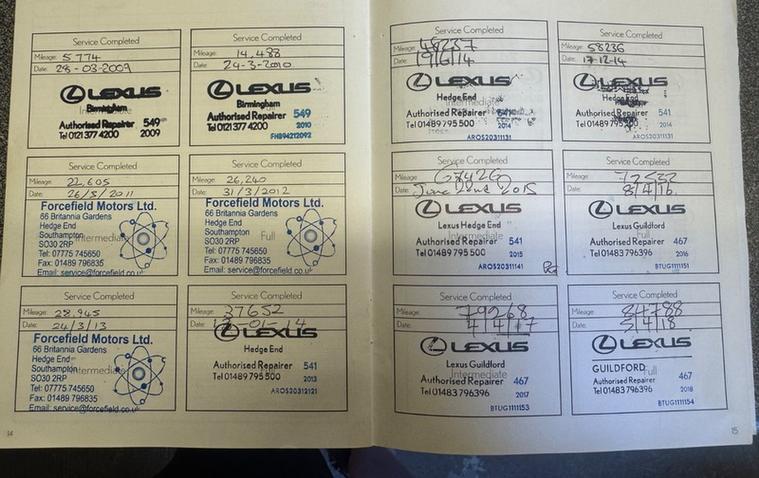 Service Completed
Mileage: 5774
Date: 28-03-2009
LEXUS
Birmingham
Intermediate
Authorised Repairer 549
Tel 0121 377 4200 2009
Service Completed
Mileage: 14,488
Date: 24-3-2010
LEXUS
Birmingham
Authorised Repairer 549
Tel 0121 377 4200 2010
FHB94212092
Service Completed
Mileage: 22,605
Date: 26/5/2011
Forcefield Motors Ltd.
66 Britannia Gardens
Hedge End
Southampton
Intermediate
SO30 2RP
Tel: 07775 745650
Fax: 01489 796835
Email: service@forcefield.co.u
Service Completed
Mileage: 26,240
Date: 31/3/2012
Forcefield Motors Ltd.
66 Britannia Gardens
Hedge End
Southampton
Full
SO30 2RP
Tel: 07775 745650
Fax: 01489 796835
Email: service@forcefield.co.u
Service Completed
Mileage: 28,945
Date: 24/3/13
Forcefield Motors Ltd.
66 Britannia Gardens
Hedge End
Southampton
Intermediate
SO30 2RP
Tel: 07775 745650
Fax: 01489 796835
Email: service@forcefield.co.u
Service Completed
Mileage: 37652
Date: -01-14
LEXUS
Hedge End
Authorised Repairer 541
Tel 01489 795 500 2013
AROS20312121
14
Service Completed
Mileage: 48237
Date: 19/6/14
LEXUS
Hedge End
Intermediate
Authorised Repairer 541
Tel 01489 795 500 2014
AROS20311131
Service Completed
Mileage: 58236
Date: 17-12-14
LEXUS
Hedge End
Authorised Repairer 541
Tel 01489 795500 2014
AROS20311131
Service Completed
Mileage:
Date: June 22nd 2015
LEXUS
Lexus Hedge End
Intermediate
Authorised Repairer 541
Tel 01489 795 500 2015
AROS20311141
Service Completed
Mileage: 72532
Date: 8/4/16.
LEXUS
Lexus Guildford
Full
Authorised Repairer 467
Tel 01483 796396 2016
BTUG111151
Service Completed
Mileage: 79268
Date: 4/4/17
LEXUS
Lexus Guildford
Intermediate
Authorised Repairer 467
Tel 01483 796396 2017
BTUG1111153
Service Completed
Mileage: 84788
Date: 5/4/18.
LEXUS
GUILDFORD
Full
Authorised Repairer 467
Tel 01483 796396 2018
BTUG1111154
15